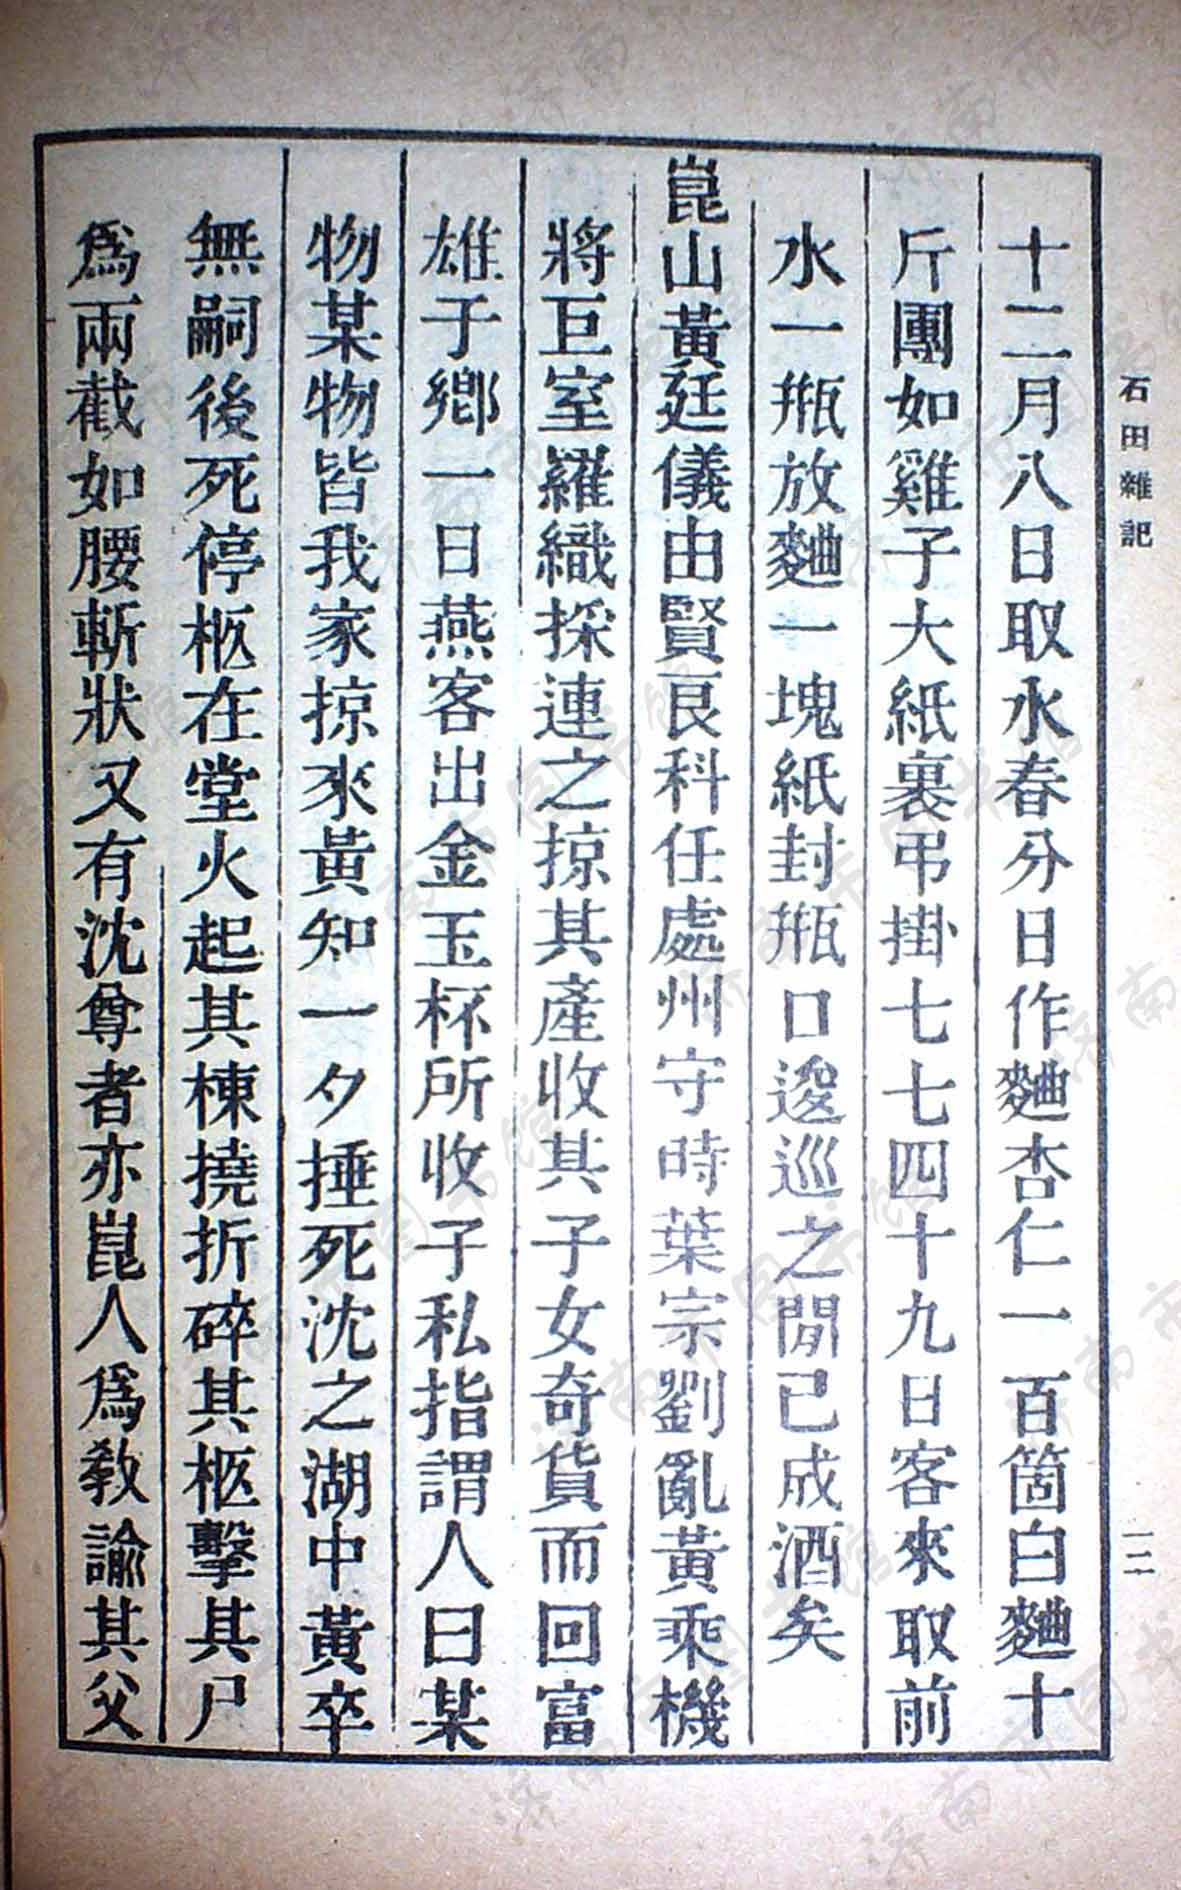 石田雜記
一二
十二月八日取水春分日作麯杏仁一百箇白麯十
斤團如雞子大紙裹弔掛七七四十九日客來取前
水一瓶放麯一塊紙封瓶口逡巡之閒已成酒矣
崑山黃廷儀由賢良科任處州守時葉宗劉亂黃乘機
將巨室羅織採連之掠其產收其子女奇貨而回富
雄于鄉一日燕客出金玉杯所收子私指謂人曰某
物某物皆我家掠來黃知一夕捶死沈之湖中黃卒
無嗣後死停柩在堂火起其棟撓折碎其柩擊其尸
爲兩截如腰斬狀又有沈尊者亦崑人爲敎諭其父
濟南市图书馆